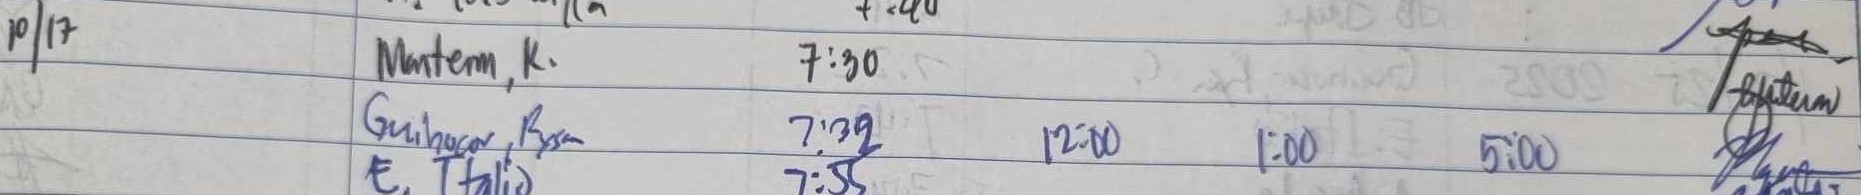 7:40
10/17 Monterm, K. 7:30
Guibocor, Ryan 7:39 12:00 1:00 5:00
E. Italio 7:55